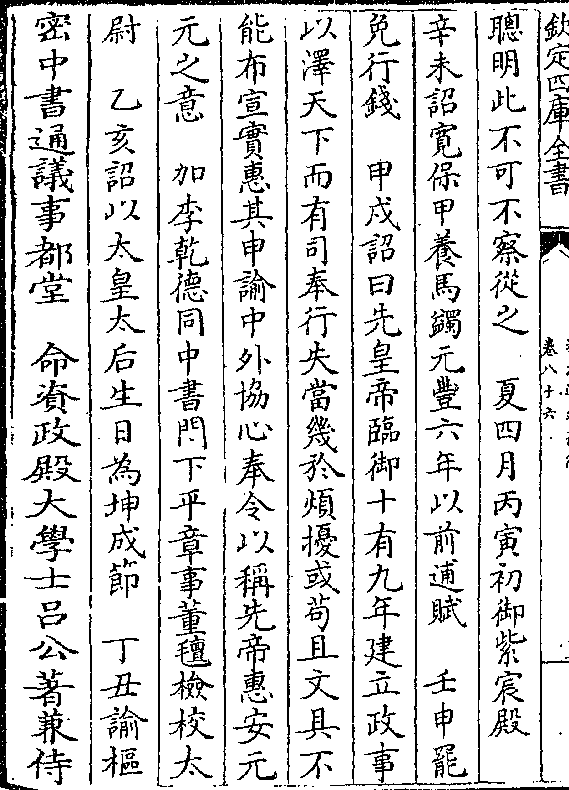 欽定四庫全書
卷八十六
聰明此不可不察從之　夏四月丙寅初御紫宸殿
辛未詔寛保甲養馬蠲元豐六年以前逋賦　壬申罷
免行錢　甲戌詔曰先皇帝臨御十有九年建立政事
以澤天下而有司奉行失當幾於煩擾或茍且文具不
能布宣實惠其申諭中外協心奉令以稱先帝惠安元
元之意　加李乾德同中書門下平章事董氊檢校太
尉　乙亥詔以太皇太后生日為坤成節　丁丑諭樞
密中書通議事都堂　命資政殿大學士吕公著兼侍